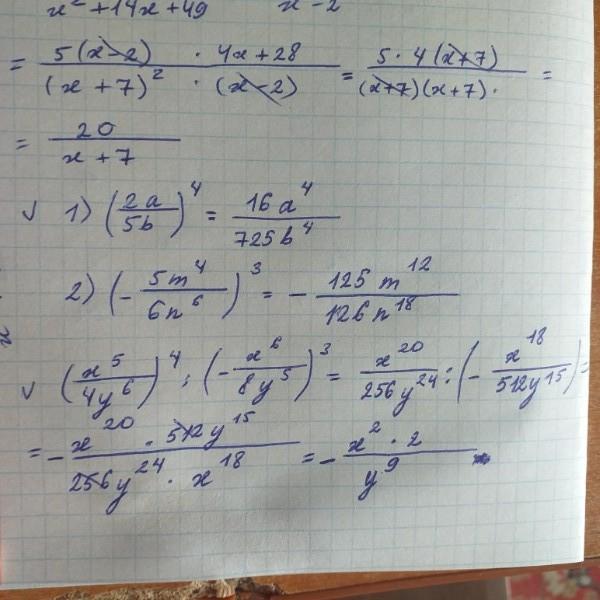 x² + 14x + 49    x - 2
= (5(x-2) · 4x+28)/((x+7)² · (x-2)) = (5·4(x+7))/((x+7)(x+7)·) =
= 20/(x+7)
√ 1) (2a/5b)⁴ = 16a⁴/725b⁴
2) (-5m⁴/6n⁶)³ = -125m¹²/126n¹⁸
√ (x⁵/4y⁶)⁴ : (-x⁶/8y⁵)³ = x²⁰/256y²⁴ : (-x¹⁸/512y¹⁵) =
= -(x²⁰ · 512y¹⁵)/(256y²⁴ · x¹⁸) = -(x² · 2)/y⁹